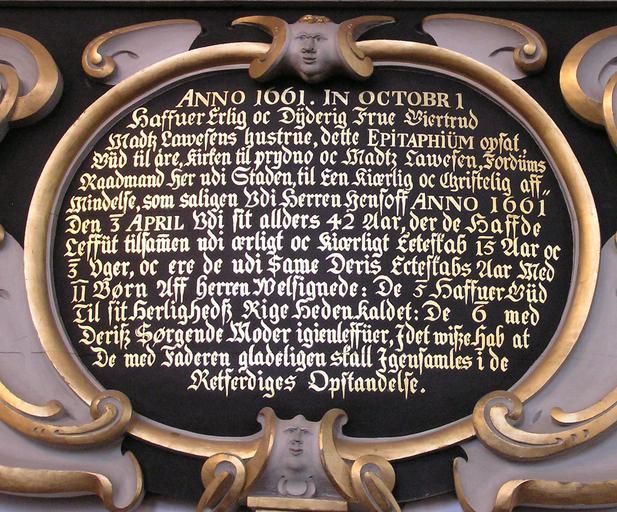 ANNO 1661. IN OCTOBR 1
Haffuer Erlig oc Dÿderig Frue Giertrud
Madtz Lawesens hustrue, dette EPITAPHIÜM opsat,
Güd til äre, Kirken til prydno oc Madtz Lawesen, Fordüms
Raadmand her udi Staden, til Een Kiærlig oc Christelig aff„
Mindelse, som saligen Vdi Herren Hensoff ANNO 1661
Den 3 APRIL Vdi sit allders 42 Aar, der de Haffde
Leffüt tilsam̅en udi ærligt oc Kiærligt Ecteskab 15 Aar oc
3 Vger, oc ere de udi Same Deris Ecteskabs Aar Med
11 Børn Aff Herren Welsignede: De 5 Haffuer Güd
Til sit Herlighedß Rige Heden Kaldet: De 6 med
Deriß Sørgende Moder igienleffüer, I det wiße Hab at
De med Faderen gladeligen skall Igensamles i de
Retferdiges Opstandelse.